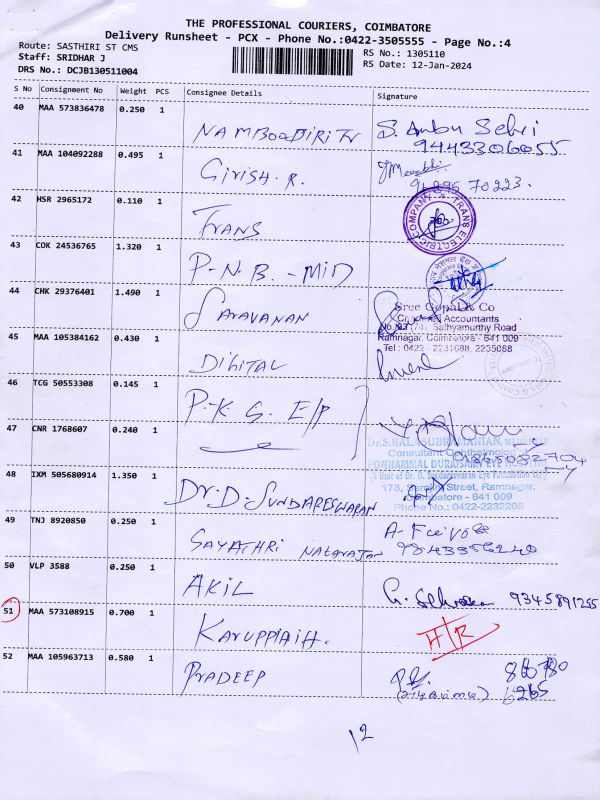 THE PROFESSIONAL COURIERS, COIMBATORE
Delivery Runsheet - PCX - Phone No.:0422-3505555 - Page No.:4
Route: SASTHIRI ST CMS
RS No.: 1305110
Staff: SRIDHAR J
RS Date: 12-Jan-2024
DRS No.: DCJB130511004
S No Consignment No Weight PCS Consignee Details Signature
40 MAA 573836478 0.250 1
NAMBOODIRI TV S. Ambu Selvi
9443306055
41 MAA 104092288 0.495 1
GIRISH. R.
70223.
42 HSR 2965172 0.110 1
TRANS
COMPANY TRANS ELECTRIC
43 COK 24536765 1.320 1
P-N.B. - MID
44 CHK 29376401 1.490 1
SARAVANAN
Sree Gopal & Co
Chartered Accountants
No. 93 Sathyamurthy Road
Ramnagar, Coimbatore - 641 009
Tel : 0422 - 2231088, 2235088
45 MAA 105384162 0.430 1
DIGITAL
46 TCG 50553308 0.145 1
P.K.G. E/P
47 CNR 1768607 0.240 1
Dr.S.BALASUBRAMANIAN,
Consultant Ophthalmologist
PONNAMMAL DURAISAMY EYE HOSPITAL
48 IXM 505680914 1.350 1
DR. D. SUNDARESWARAN
178, Street, Ramnagar,
Coimbatore - 641 009
Phone No.: 0422-2232205
49 TNJ 8920850 0.250 1
GAYATHRI NATARAJAN
9843356240
50 VLP 3588 0.250 1
AKIL
9345891255
51 MAA 573108915 0.700 1
KARUPPIAH.
H/R
52 MAA 105963713 0.580 1
PRADEEP
6265
12